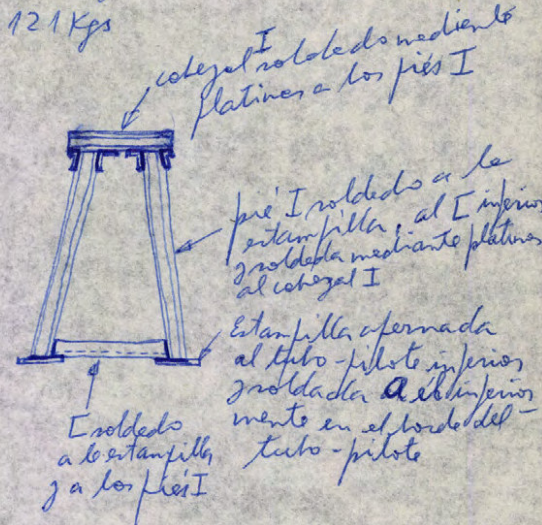 121 Kgs
I
cabezal soldado mediante
platinas a los piés I
pié I soldado a la
estampilla, al [ inferior
y soldada mediante platinas
al cabezal I
Estampilla apernada
al tubo-pilote inferior
y soldada a él inferior
mente en el borde del
tubo-pilote
[ soldado
a la estampilla
y a los piés I